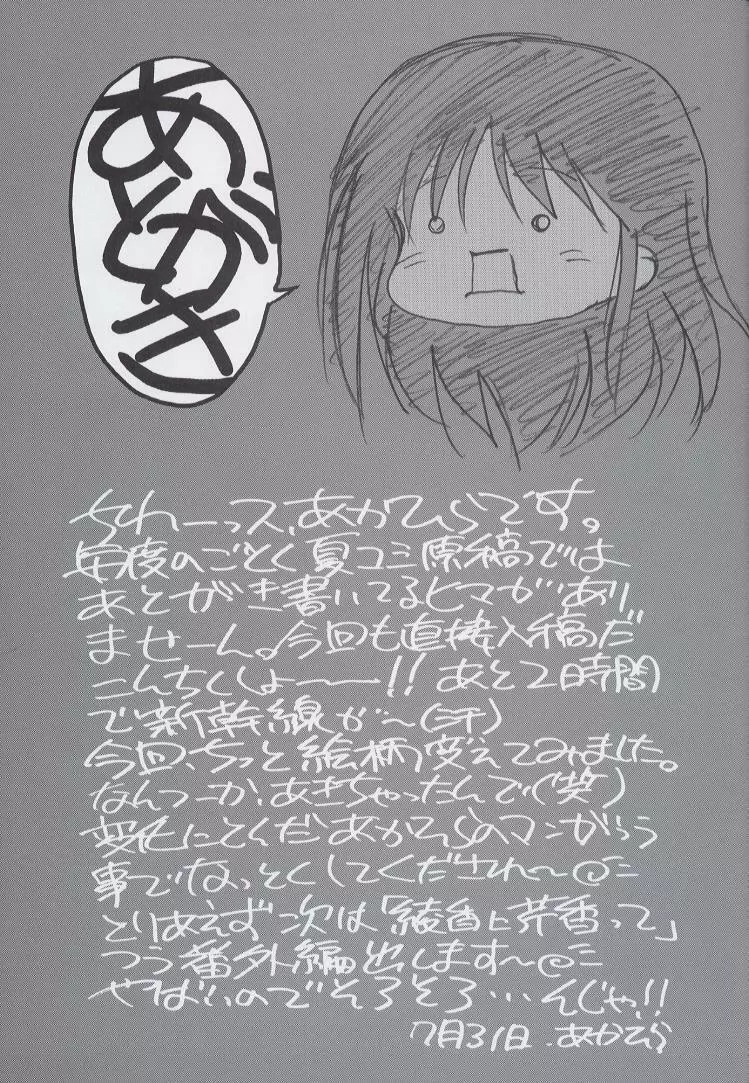 あとがき
ちわーっス、あかひらです。
毎度のごとく夏コミ原稿では
あとがき書いてるヒマがあり
ませーん。今回も直接入稿だ
こんちくしょーー!! あと2時間
で新幹線が〜(汗)
今回、ちっと絵柄変えてみました。
なんつーか、あきちゃったんで(笑)
変化にとんだあかひらのマンガっつう
事でなっとくしてくだされ〜
とりあえず次は「綾香と芹香って」
つう番外編出します〜
やばいのでそろそろ…んじゃ!!
7月31日.あかひら